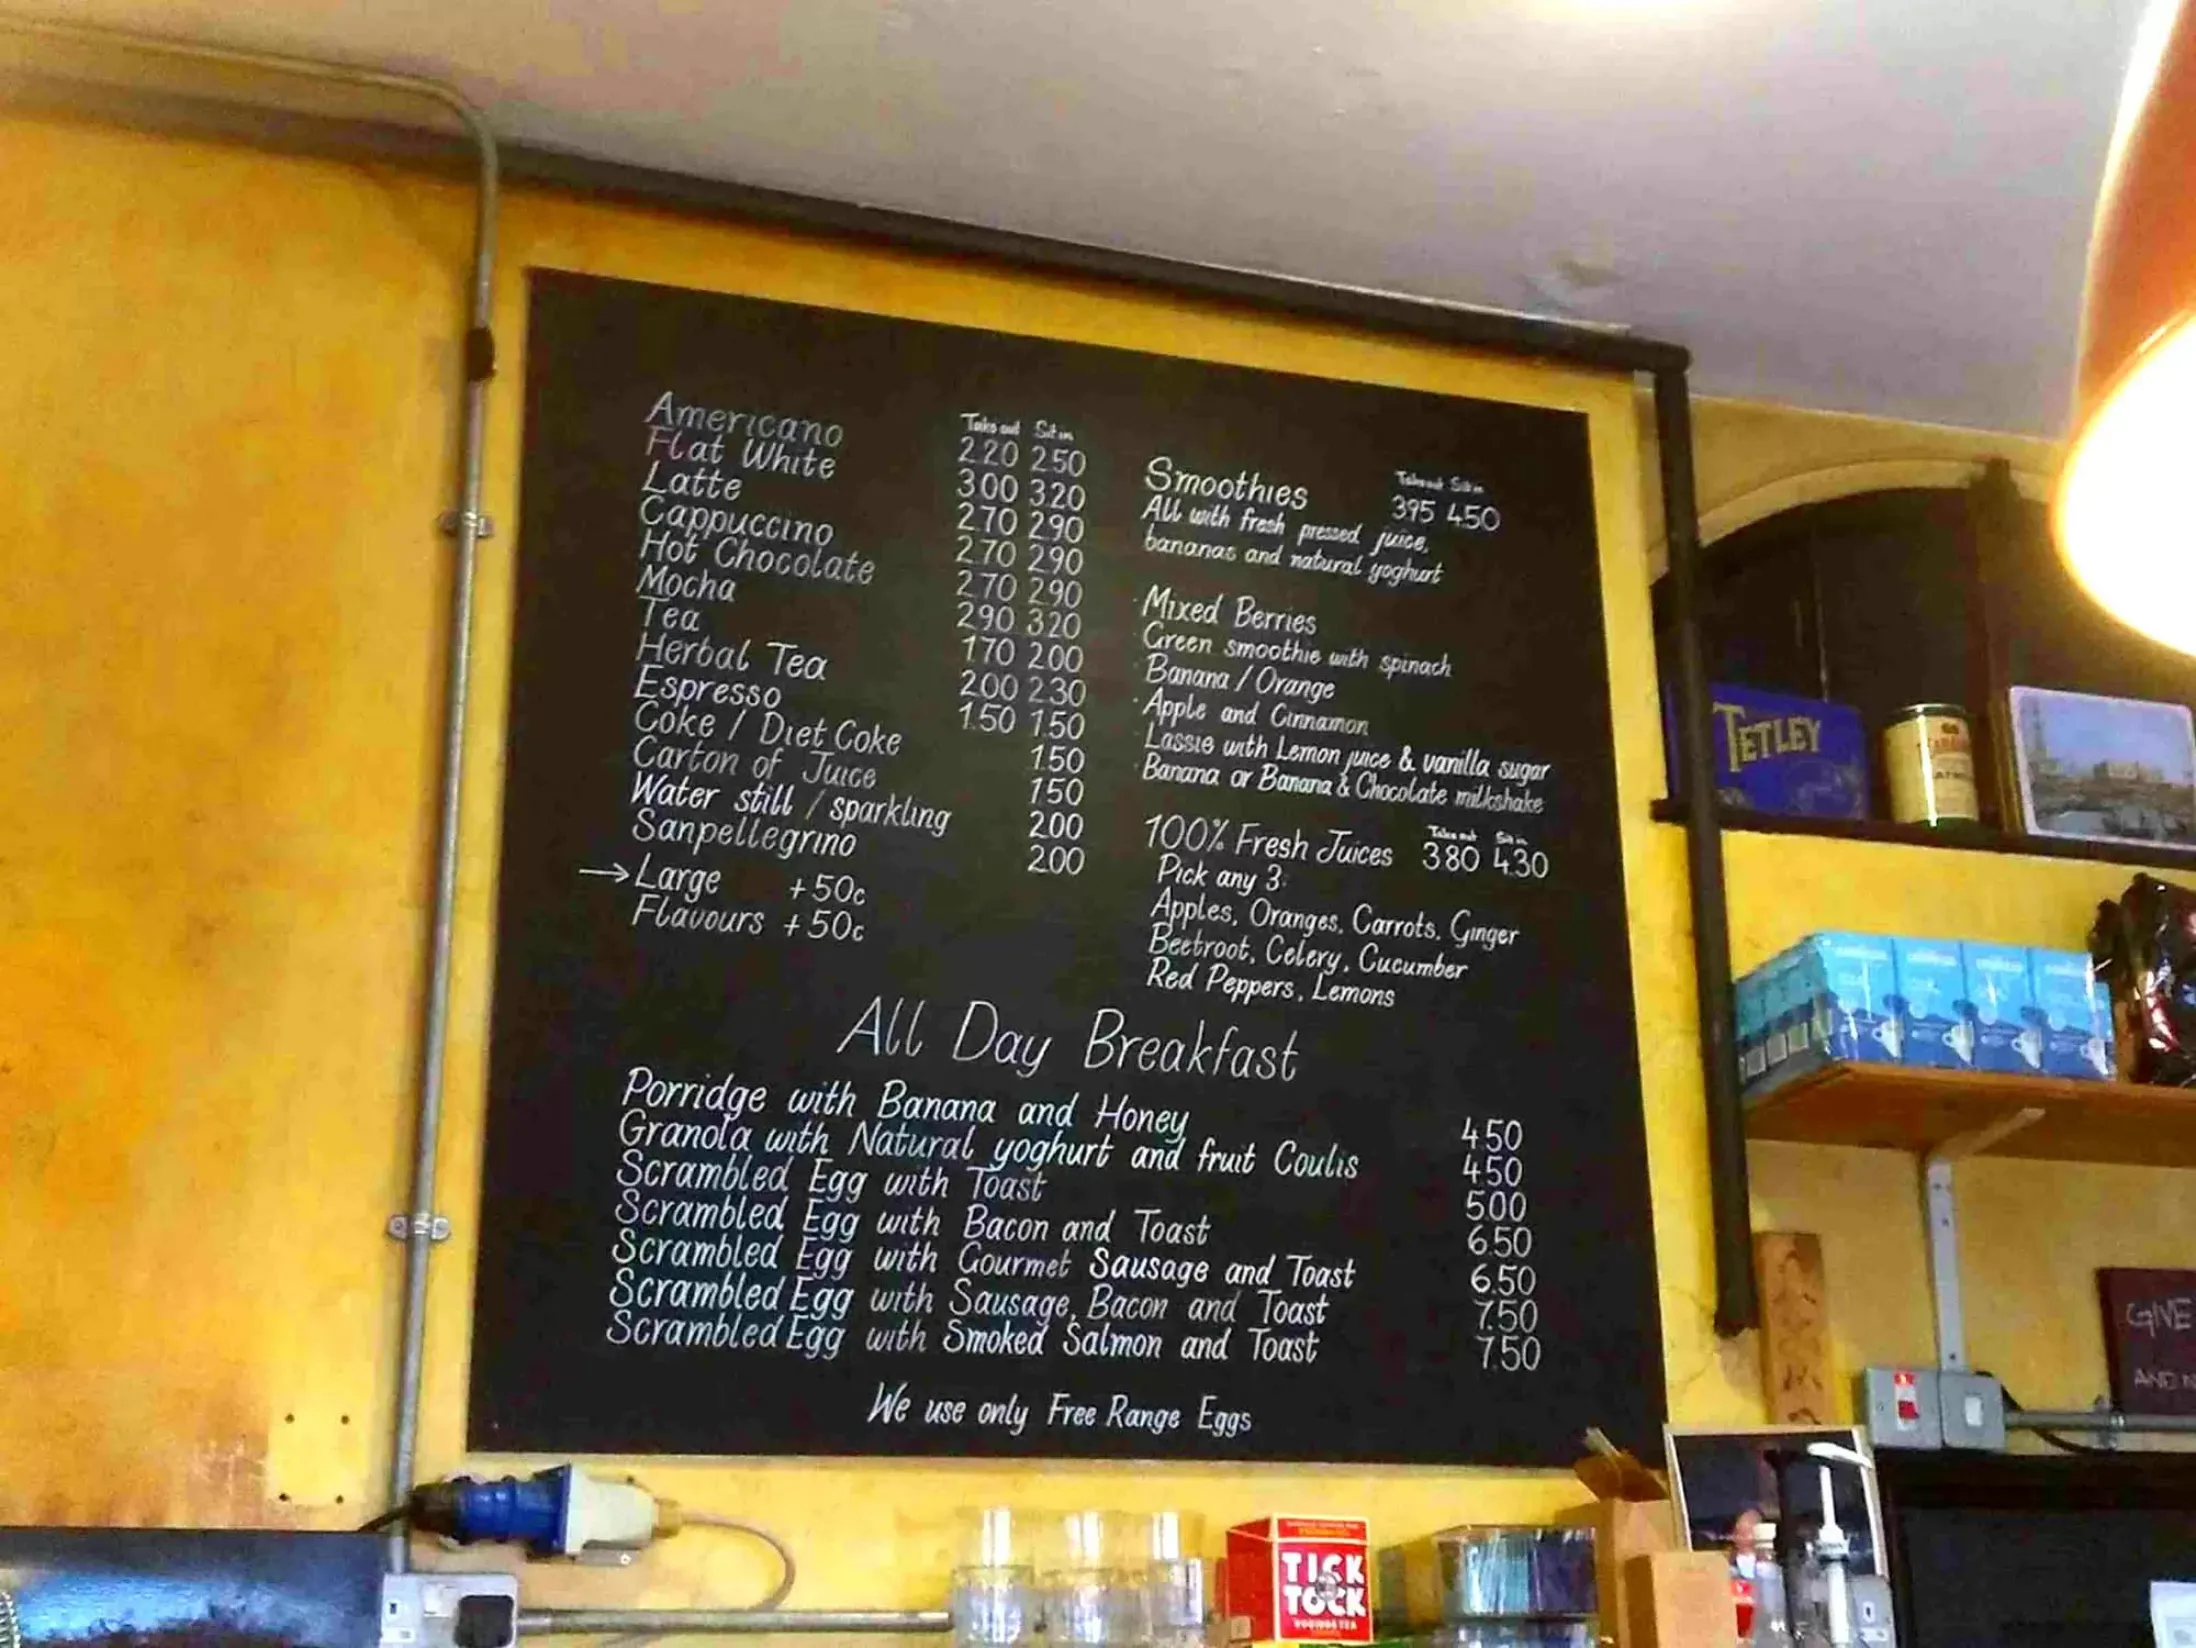 Take out Sit in
Americano 2.20 2.50
Flat White 3.00 3.20
Latte 2.70 2.90
Cappuccino 2.70 2.90
Hot Chocolate 2.70 2.90
Mocha 2.90 3.20
Tea 1.70 2.00
Herbal Tea 2.00 2.30
Espresso 1.50 1.50
Coke / Diet Coke 1.50
Carton of Juice 1.50
Water still / sparkling 2.00
Sanpellegrino 2.00
→ Large +50c
Flavours +50c
Take out Sit in
Smoothies 3.95 4.50
All with fresh pressed juice,
bananas and natural yoghurt
· Mixed Berries
· Green smoothie with spinach
· Banana / Orange
· Apple and Cinnamon
· Lassie with Lemon juice & vanilla sugar
· Banana or Banana & Chocolate milkshake
Take out Sit in
100% Fresh Juices 3.80 4.30
Pick any 3:
Apples, Oranges, Carrots, Ginger
Beetroot, Celery, Cucumber
Red Peppers, Lemons
All Day Breakfast
Porridge with Banana and Honey 4.50
Granola with Natural yoghurt and fruit Coulis 4.50
Scrambled Egg with Toast 5.00
Scrambled Egg with Bacon and Toast 6.50
Scrambled Egg with Gourmet Sausage and Toast 6.50
Scrambled Egg with Sausage, Bacon and Toast 7.50
Scrambled Egg with Smoked Salmon and Toast 7.50
We use only Free Range Eggs
TETLEY
GIVE
AND
TICK
TOCK